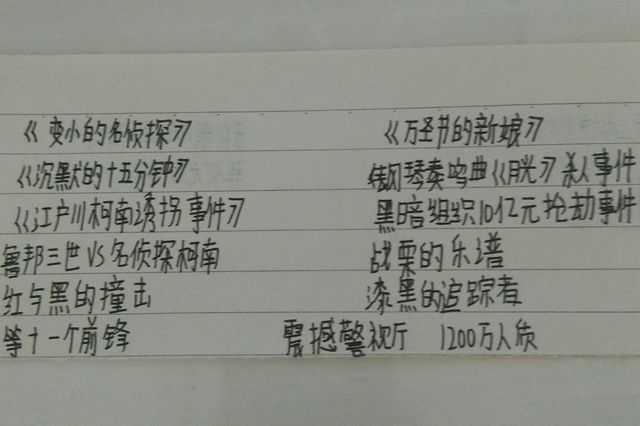 《变小的名侦探》 《万圣节的新娘》
《沉默的十五分钟》 钢琴奏鸣曲《月光》杀人事件
《江户川柯南诱拐事件》 黑暗组织10亿元抢劫事件
鲁邦三世VS名侦探柯南 战栗的乐谱
红与黑的撞击 漆黑的追踪者
第十一个前锋 震撼警视厅 1200万人质